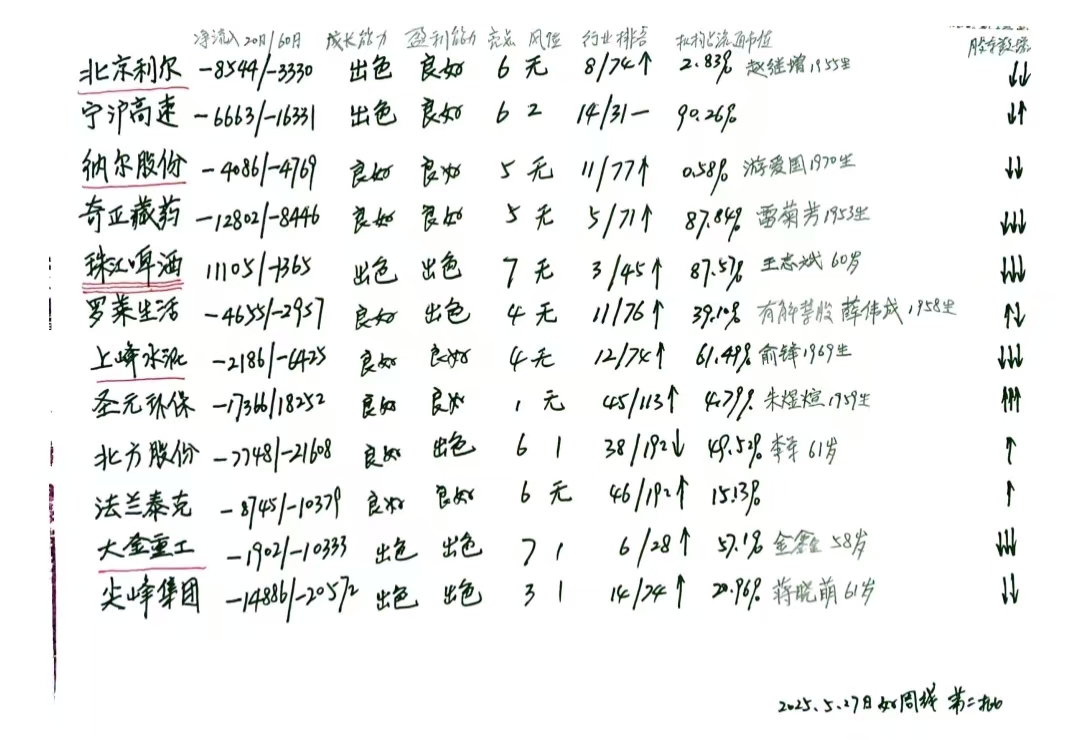 净流入20日/60日 成长能力 盈利能力 亮点 风险 行业排名 机构占流通市值
北京利尔 -8544/-3330 出色 良好 6 无 8/74↑ 2.83% 赵继增1955生 ↓↓
宁沪高速 -6663/-16331 出色 良好 6 2 14/31一 90.26% ↓↑
纳尔股份 -4086/-4769 良好 良好 5 无 11/77↑ 0.58% 游爱国1970生 ↓↓
奇正藏药 -12802/-8446 良好 良好 5 无 5/71↑ 87.84% 雷菊芳1953生 ↓↓↓
珠江啤酒 11105/-1365 出色 出色 7 无 3/45↑ 87.57% 王志斌60岁 ↓↓↓
罗莱生活 -4655/-2957 良好 出色 4 无 11/76↑ 39.10% 有解禁股 薛伟成,1958生 ↑↓
上峰水泥 -2186/-6425 良好 良好 4 无 12/74↑ 61.49% 俞锋1969生 ↓↓↓
圣元环保 -17366/18252 良好 良好 1 无 45/113↑ 4.79% 朱煜煊1959生 ↑↑↑
北方股份 -7748/-21608 良好 出色 6 1 38/192↓ 49.52% 61岁 ↑
法兰泰克 -8745/-10379 良好 良好 6 无 46/192↑ 15.13% ↑
大金重工 -1902/-10333 出色 出色 7 1 6/28↑ 57.1% 金鑫 58岁 ↓↓↓
尖峰集团 -14886/-20572 出色 出色 3 1 14/24↑ 20.96% 蒋晓萌61岁 ↓↓
2025.5.27日 周线 第二批